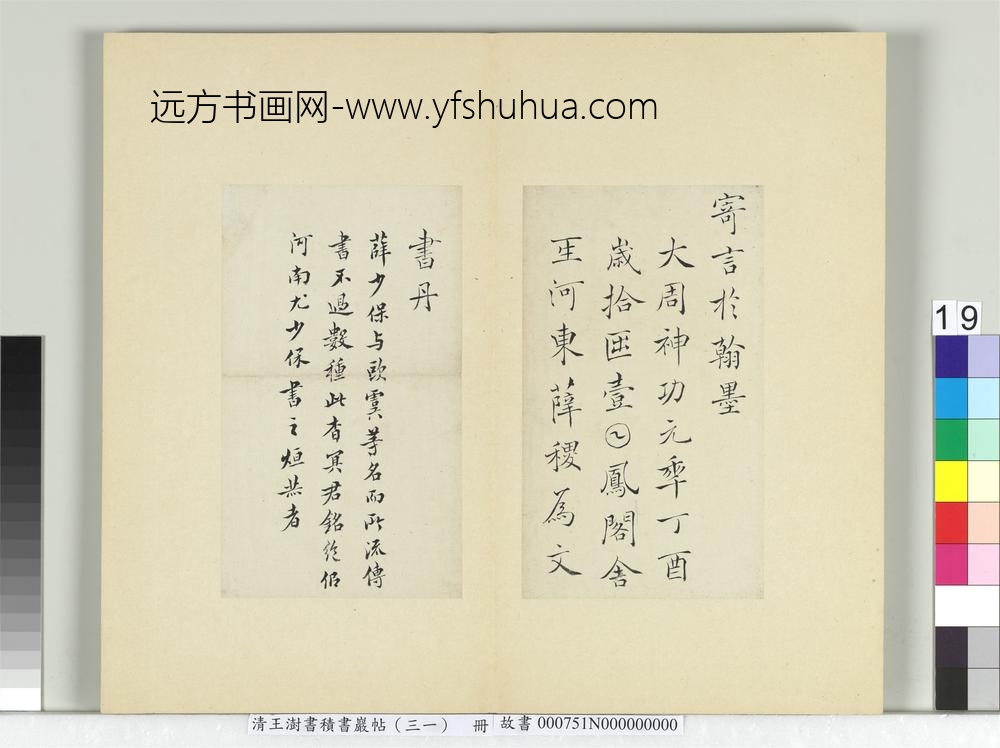 远方书画网-www.yfshuhua.com
寄言於翰墨
大周神功元𠡦丁酉
歲拾𠥱壹𡆠鳳閣舍
𤯔河東薛稷為文
書丹
薛少保与歐虞等名而所流傳
書不過數種此杳冥君銘絶佀
河南尤少保書之烜赫者
19
清王澍書積書巖帖（三一） 冊 故書 000751N000000000